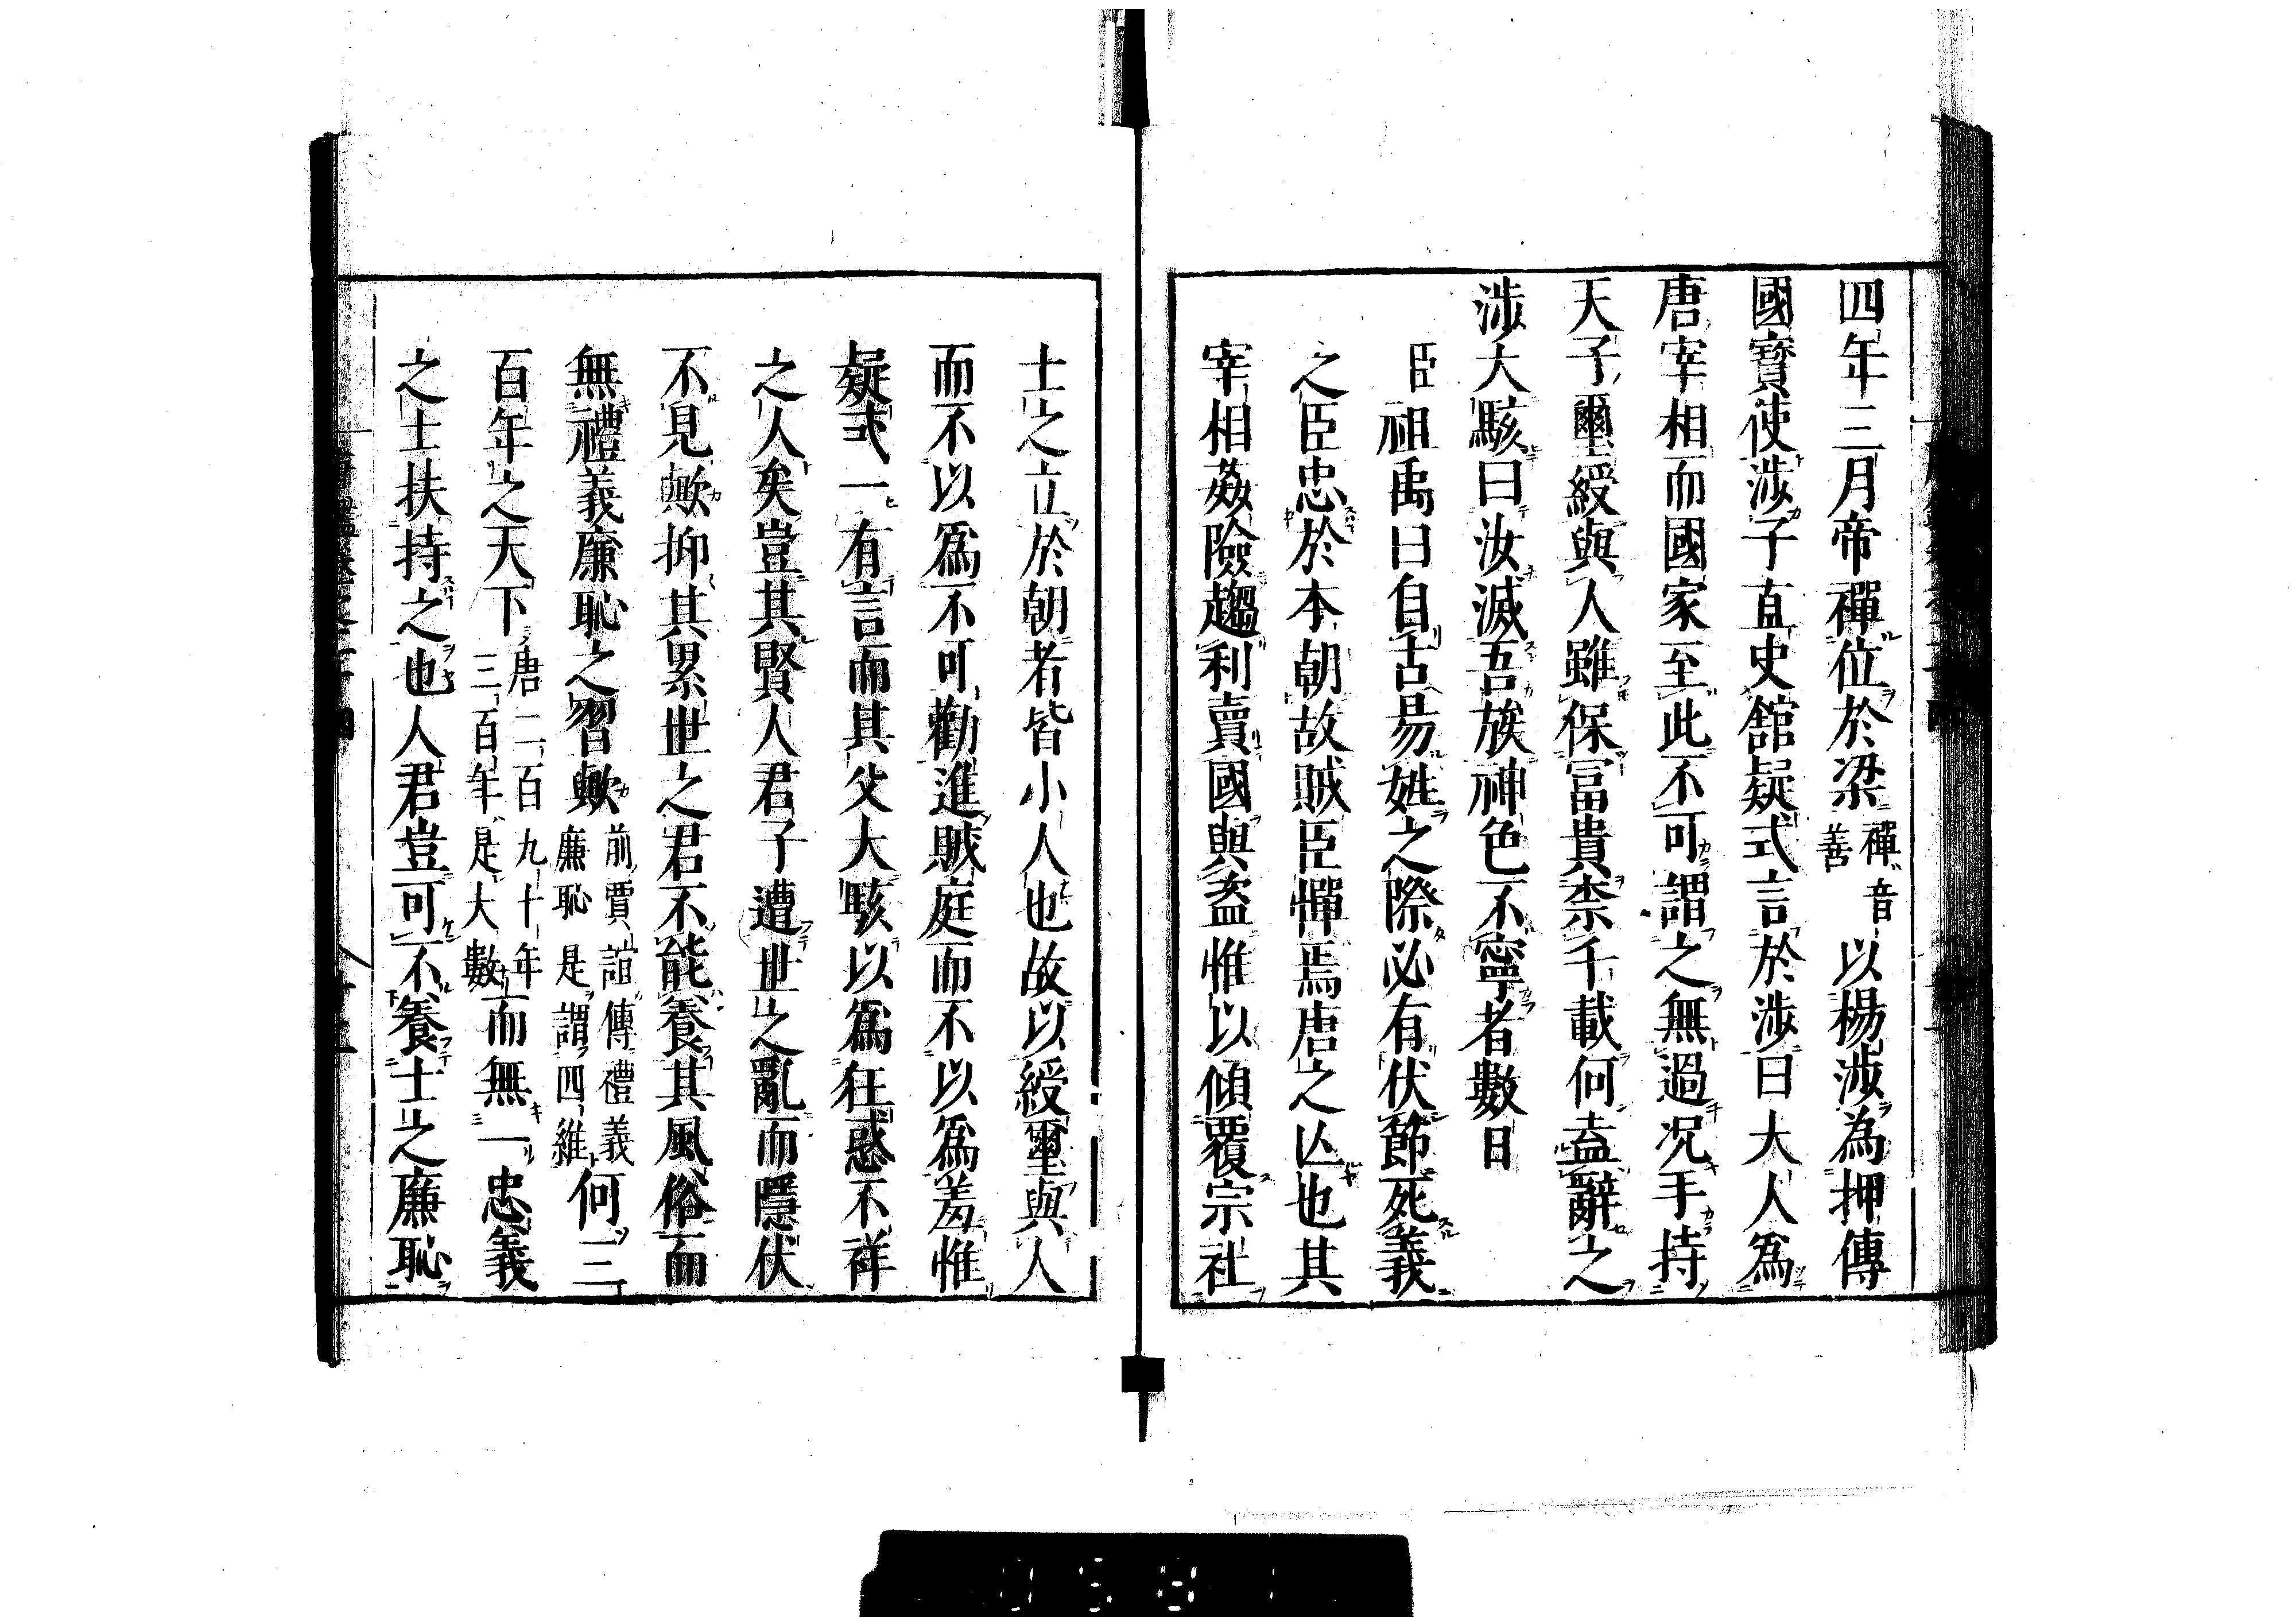 四年三月帝禪位於梁禪音善以楊涉為押傳
國寶使涉子直史館疑式言於涉曰大人爲
唐宰相而國家至此不可謂之無過况手持
天子璽綬與人雖保冨貴柰千載何盍辭之
涉大駭曰汝滅吾族神色不寧者數日
臣祖禹曰自古昜姓之際必有伏節死義
之臣忠於本朝故賊臣憚焉唐之亾也其
宰相姦險趨利賣國與盗惟以傾覆宗社
士之立於朝者皆小人也故以綬璽與人
而不以爲不可勸進賊庭而不以爲羞惟
疑式一有言而其父大駭以爲狂惑不祥
之人矣豈其賢人君子遭世之亂而隱伏
不見歟抑其累世之君不能養其風俗而
無禮義廉恥之習歟前賈誼傳禮義廉恥是謂四維何三
百年之天下唐二百九十年三百年是大數而無一忠義
之士扶持之也人君豈可不養士之廉恥